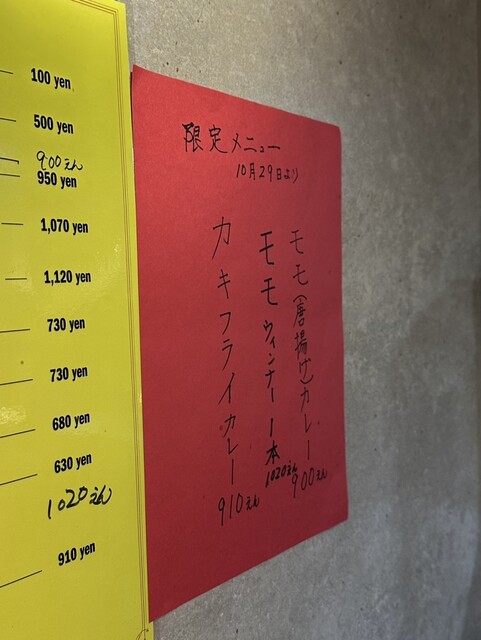 100 yen
500 yen
900えん
950 yen
1,070 yen
1,120 yen
730 yen
730 yen
680 yen
630 yen
1020えん
910 yen
限定メニュー
10月29日より
モモ(唐揚げ)カレー
900えん
モモウィンナー1本
1020えん
カキフライカレー
910えん